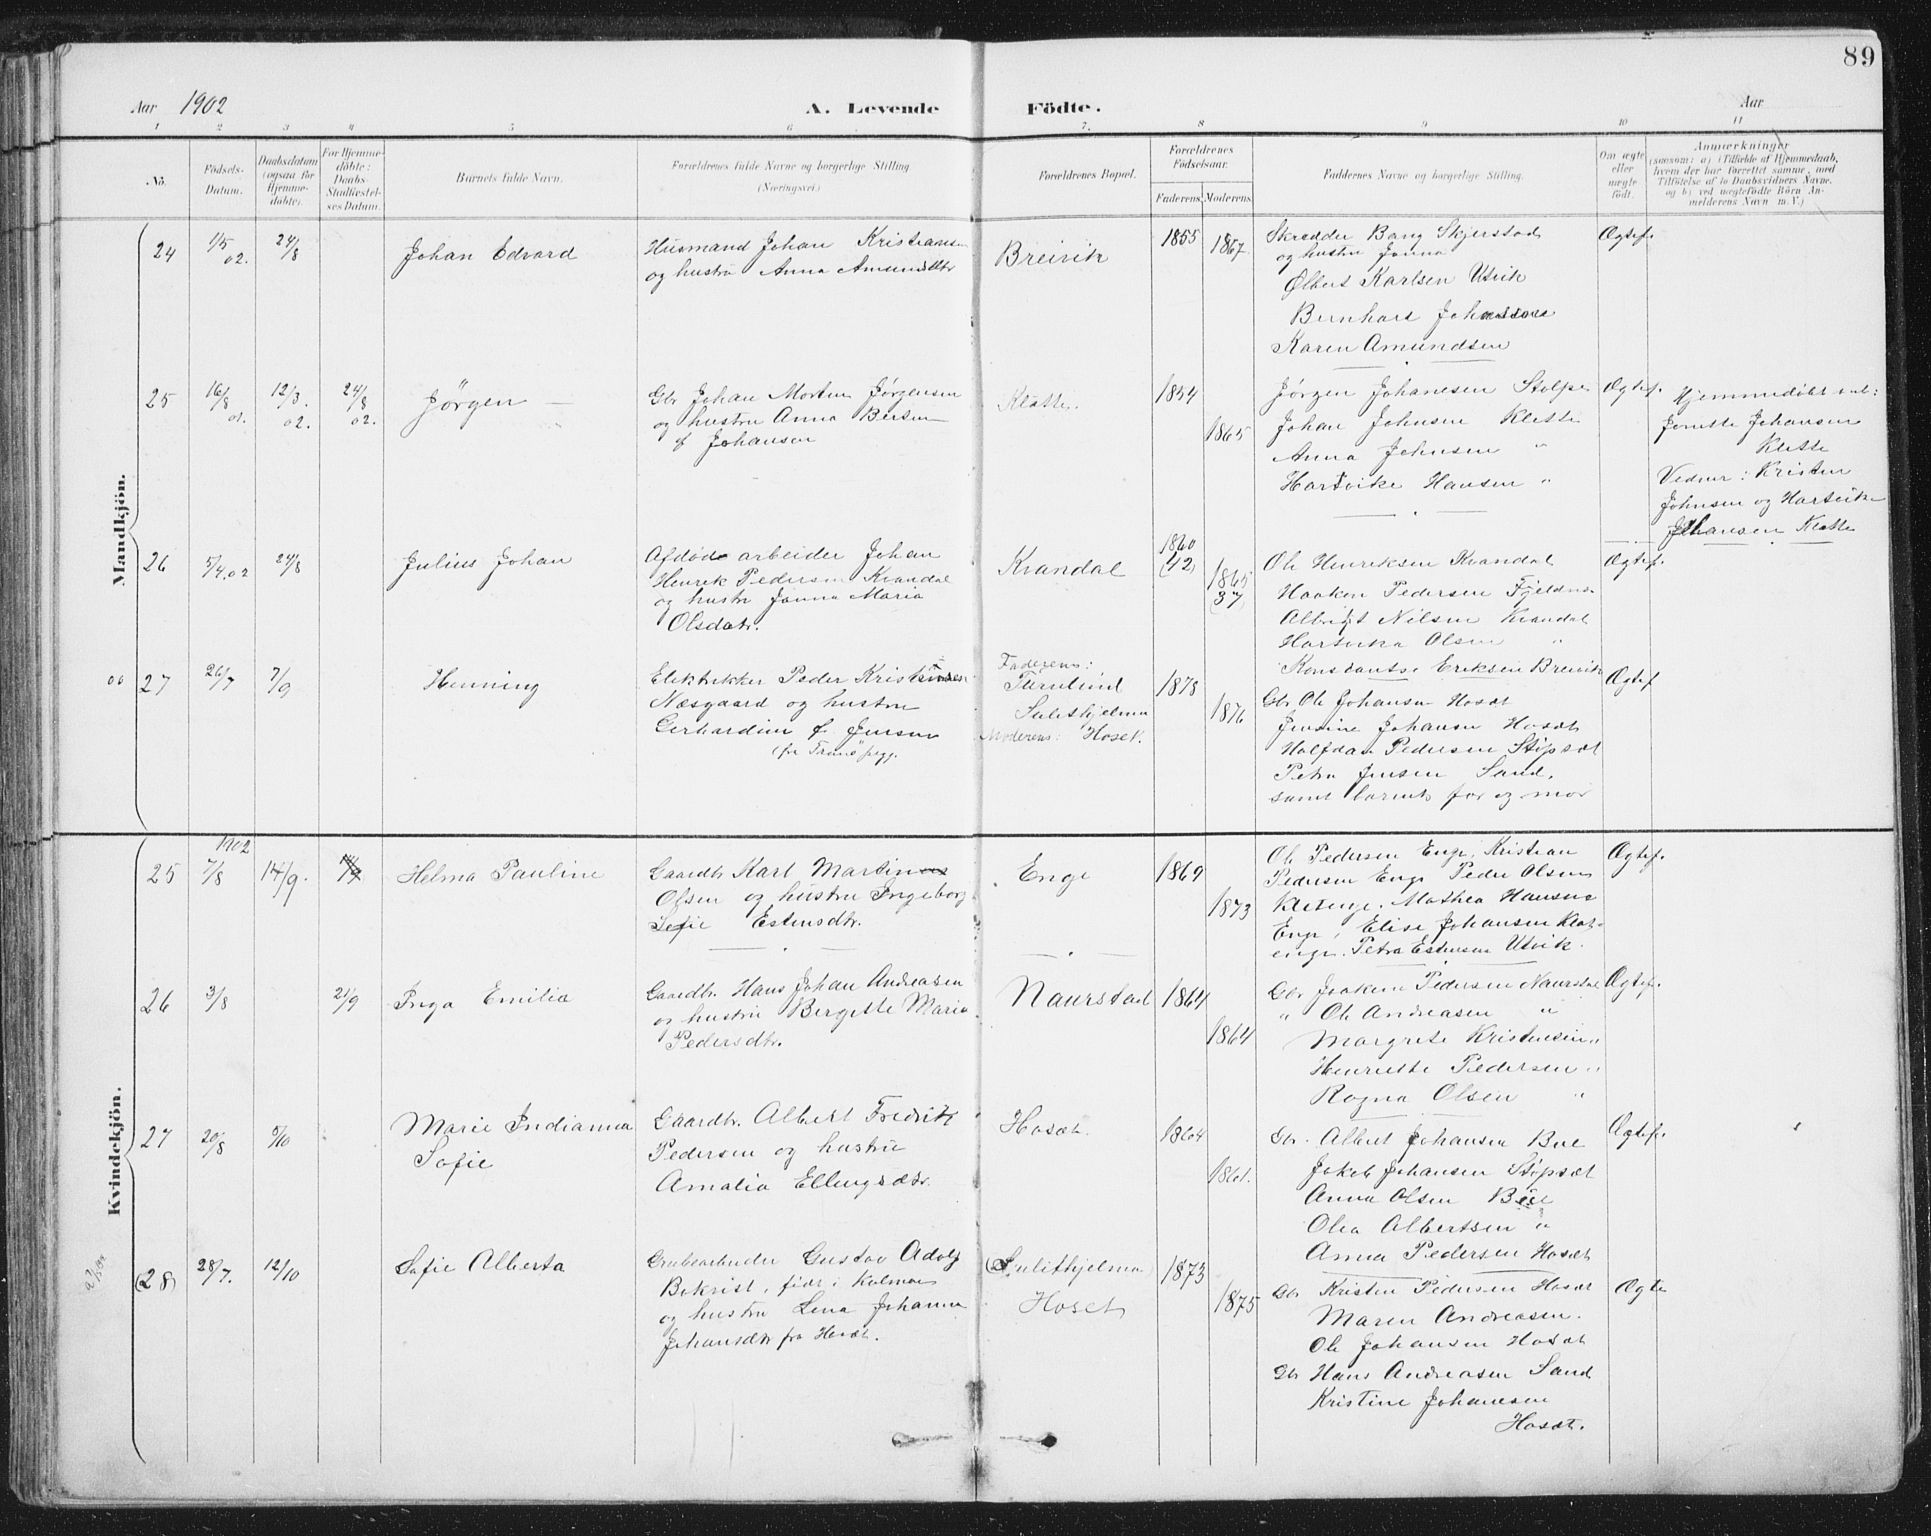 89
Aar 1902
A. Levende Födte.
Aar
1 2 3 4 5 6 7. 8 9 10 11
No.
Födsels-Datum.
Daabsdatum (ogsaa for Hjemmedöbte).
For Hjemmedöbte: Daabs-Stadfæstelses Datum.
Barnets fulde Navn.
Forældrenes fulde Navne og borgerlige Stilling (Næringsvei.)
Forældrenes Bopæl.
Forældrenes Födselsaar.
Faderens. Moderens.
Faddernes Navne og borgerlige Stilling.
Om ægte eller uægte födt.
Anmærkninger
(saasom: a) i Tilfælde af Hjemmedaab,
hvem der har forrettet samme, med
Tilföielse af to Daabsvidners Navne,
og b) ved uægtefödte Börn An-
melderens Navn m. V.)
Mandkjön.
24 1/5 02. 24/8 Johan Edvard
Husmand Johan Kristiansen
og hustru Anna Amundsdtr
Breivik
1855 1867
Skredder Bang Skjerstad
og hustru Janna
Ølbert Karlsen Utvik
Bernhard
Karen Amundsen
Ægtef.
25 16/8 01. 12/3. 02. 24/8 02. Jörgen
Gbr Johan Morten Jørgensen
og hustru Anna
f Johansen
Klette.
1854 1865
Jørgen Johanesen Stolpe
Johan Johnsen Klette
Anna Johnsen "
Hartvike Hansen "
Ægtef.
Hjemmedøbt ved:
Jonette Johansen
Klette
Vidner: Kristen
Johnsen og Hartvike
Johansen Klette
26 5/4.02 24/8 Julius Johan
Afdøde arbeider Johan
Henrik Pedersen Kvandal
og hustru Janna Maria
Olsdatr.
Kvandal
1860 (42) 1865 (37)
Ole Henriksen Kvandal
Haaken Pedersen
Albrigt Nilsen Kvandal
Hartvika Olsen "
Konstantse Eriksen Breivik
Ægtef.
27 26/7 7/9 Henning
Elektrikker Peder Kristensen
Næsgaard og hustru
Gerhardine f Jensen
Faderens:
Furulund
Sulithjelma
Moderens: Hoset.
1878 1876
Gbr Ole Johansen Hosæt
Jensine Johansen Hosæt
Halfdan Pedersen Støpsæt
Petra Jensen Sand.
samt barnets far og mor
Ægtef
Kvindekjön.
25 1902 7/8 14/9. Helma Pauline
Gaardbr Karl Martin
Olsen og hustru Ingeborg
Sofie Estensdtr.
Enge
1869 1873
Ole Pedersen Enge, Kristian
Pedersen Enge Peder Olsen
Kletenge. Mathea Hansen
Enge, Elise Johansen Klet-
enge. Petra Estensen Utvik.
Ægtef.
26 3/8 21/9 Inga Emilie
Gaardbr. Hans Johan Andreasen
og hustru Bergitte Marie
Pedersdtr.
Naurstad
1864 1864
Gbr Joakim Pedersen Naurstad
" Ole Andreasen "
Margrete Kristensen "
Henriette Pedersen "
Ragna Olsen "
Ægtef.
27 20/8 5/10 Marie Indianna
Sofie
Gaardbr. Albert Fredrik
Pedersen og hustru
Amalia Ellingsdtr.
Hosæt.
1864 1861.
Gbr. Albert Johansen Bue
Jakob Johansen Støpsæt
Anna Olsen Bue
Olea Albertsen "
Anna Pedersen Hosæt
Ægtef.
(28) 28/7. 12/10 Sofie Alberta
Grubearbeider Gustav Adolf
Bokvist, født i Kalmar
og hustru Lena Johanna
Johansdtr fra Hosæt.
(Sulithjelma)
Hoset
1873 1875
Gbr Kristen Pedersen Hosæt
Maren Andreasen.
Ole Johansen Hosæt
Gbr Hans Andreasen Sand
Kristine Johanesen
Hosæt.
Ægte